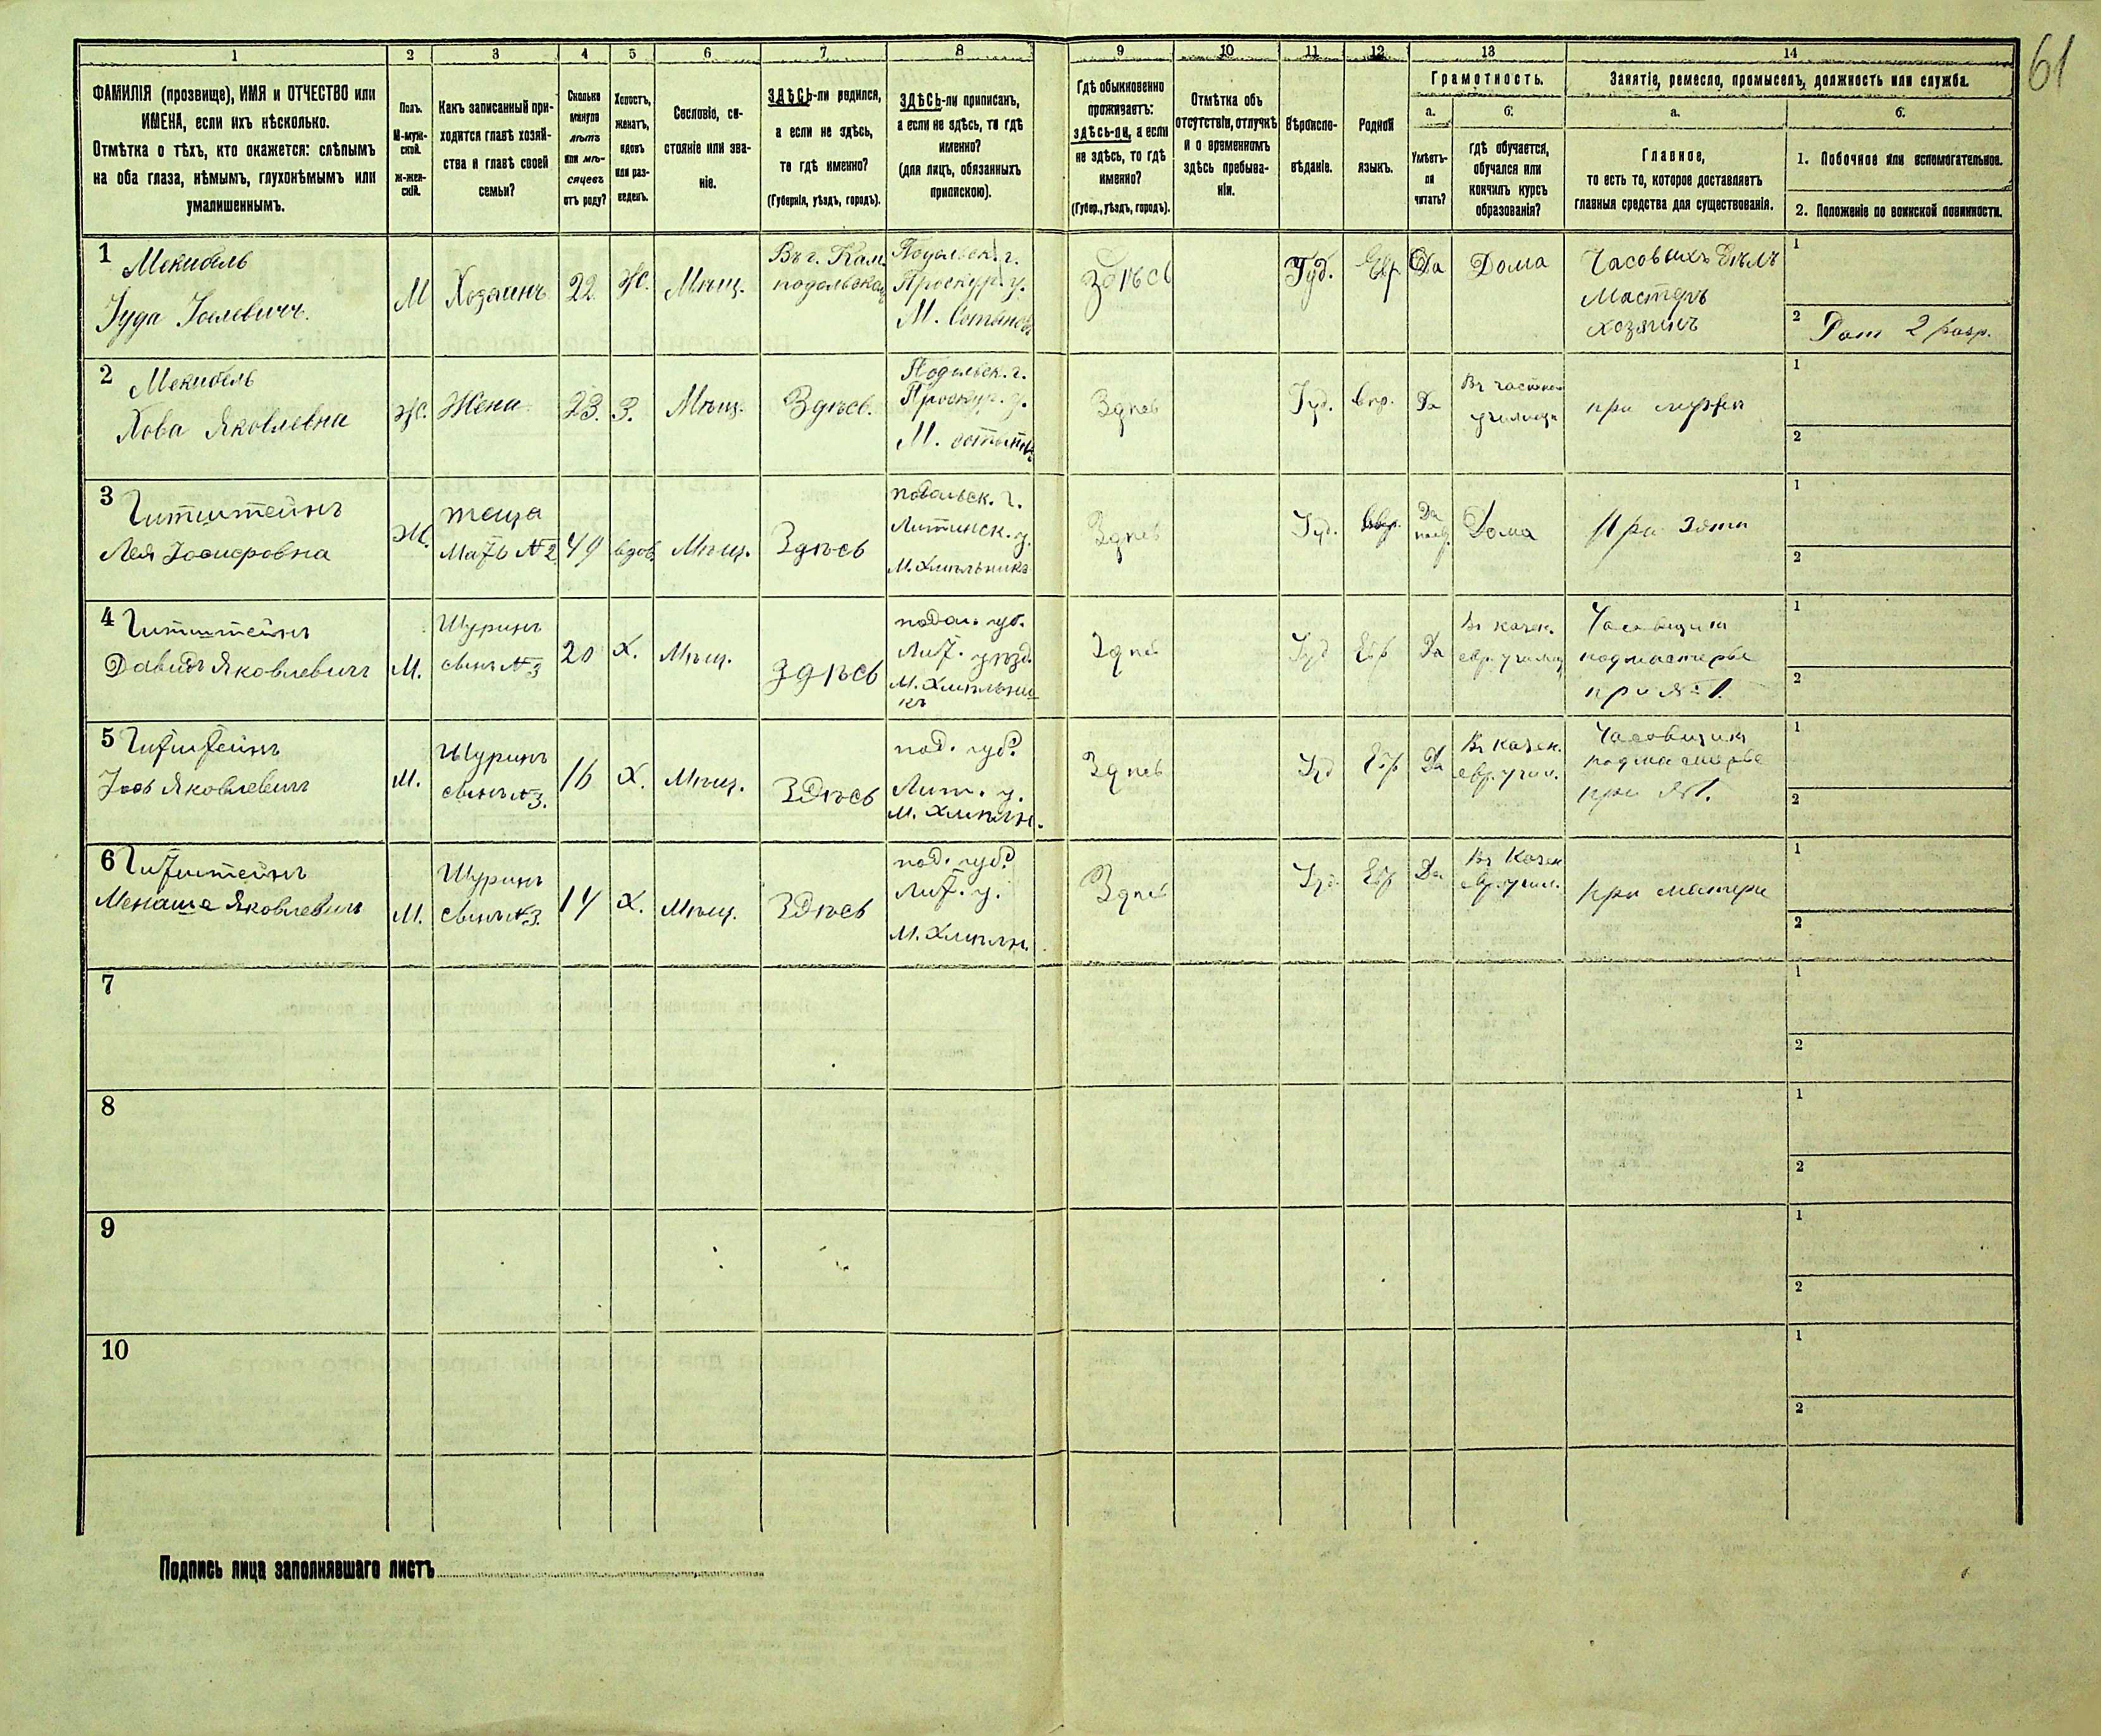 61
1 2 3 4 5 6 7 8 9 10 11 12 13 14
ФАМИЛІЯ (прозвище), ИМЯ и ОТЧЕСТВО или
ИМЕНА, если ихъ нѣсколько.
Отмѣтка о тѣхъ, кто окажется: слѣпымъ
на оба глаза, нѣмымъ, глухонѣмымъ или
умалишеннымъ.
Полъ.
М-муж-
ской.
ж-жен-
скій.
Какъ записанный при-
ходится главѣ хозяй-
ства и главѣ своей
семьи?
Сколько
минуло
лѣтъ
или мѣ-
сяцевъ
отъ роду?
Холостъ,
женатъ,
вдовъ
или раз-
веденъ.
Сословіе, со-
стояніе или зва-
ніе.
ЗДѢСЬ-ли родился,
а если не здѣсь,
то гдѣ именно?
(Губернія, уѣздъ, городъ).
ЗДѢСЬ-ли приписанъ,
а если не здѣсь, то гдѣ
именно?
(для лицъ, обязанныхъ
припискою).
Гдѣ обыкновенно
проживаетъ:
здѣсь-ли, а если
не здѣсь, то гдѣ
именно?
(Губер., уѣздъ, городъ).
Отмѣтка объ
отсутствіи, отлучкѣ
и о временномъ
здѣсь пребыва-
ніи.
Вѣроиспо-
вѣданіе.
Родной
языкъ.
Грамотность.
а.
Умѣетъ-
ли
читать?
б.
гдѣ обучается,
обучался или
кончилъ курсъ
образованія?
Занятіе, ремесло, промыселъ, должность или служба.
а.
Главное,
то есть то, которое доставляетъ
главныя средства для существованія.
б.
1. Побочное или вспомогательное.
2. Положеніе по воинской повинности.
1
Мекибель
Іуда Іоелевичъ.
М
Хозяинъ
22
Ж.
Мѣщ.
Въ г. Кам.
подольскомъ
Подольск. г.
Проскур. у.
М.
Здѣсь
Іуд.
Евр
Да
Дома
Часовыхъ дѣлъ
Мастеръ
хозяинъ
1
2
2 разр.
2
Мекибель
Хова Яковлевна
Ж.
Жена
23.
З.
Мѣщ.
Здѣсь.
Подольск. г.
Проскур. у.
М.
Здѣсь
Іуд.
евр.
Да
Въ частном
училищѣ
при мужѣ
1
2
3
Гитштейнъ
Лея
Ж.
теща
Мать №2
49
вдов.
Мѣщ.
Здѣсь
подольск. г.
Литинск. у.
М. Хмѣльника
Здѣсь
Іуд.
Евр.
Да
Дома
При зятѣ
1
2
4
Гитштейнъ
Давидъ Яковлевичъ
М.
Шуринъ
сынъ №3
20
Х.
Мѣщ.
Здѣсь
подол. губ.
Лит. уѣзд.
М. Хмѣльни-
къ
Здѣсь
Іуд
Евр
Да
Въ казен.
евр. училищ
Часовщикъ
подмастерье
при №1.
1
2
5
Гитштейнъ
Іось Яковлевичъ
М.
Шуринъ
сынъ №3.
16
Х.
Мѣщ.
Здѣсь
под. губ.
Лит. у.
М. Хмѣльн.
Здѣсь
Іуд
Евр
Да
Въ казен.
евр. учил.
Часовщикъ
подмастерье
при №1.
1
2
6
Гитштейнъ
Менаше Яковлевичъ
М.
Шуринъ
сынъ №3.
14
Х.
Мѣщ.
Здѣсь
под. губ.
Лит. у.
М. Хмѣльн.
Здѣсь
Іуд.
Евр
Да
Въ Казен
евр. учил.
при матери
1
2
7
1
2
8
1
2
9
1
2
10
1
2
Подпись лица заполнявшаго листъ